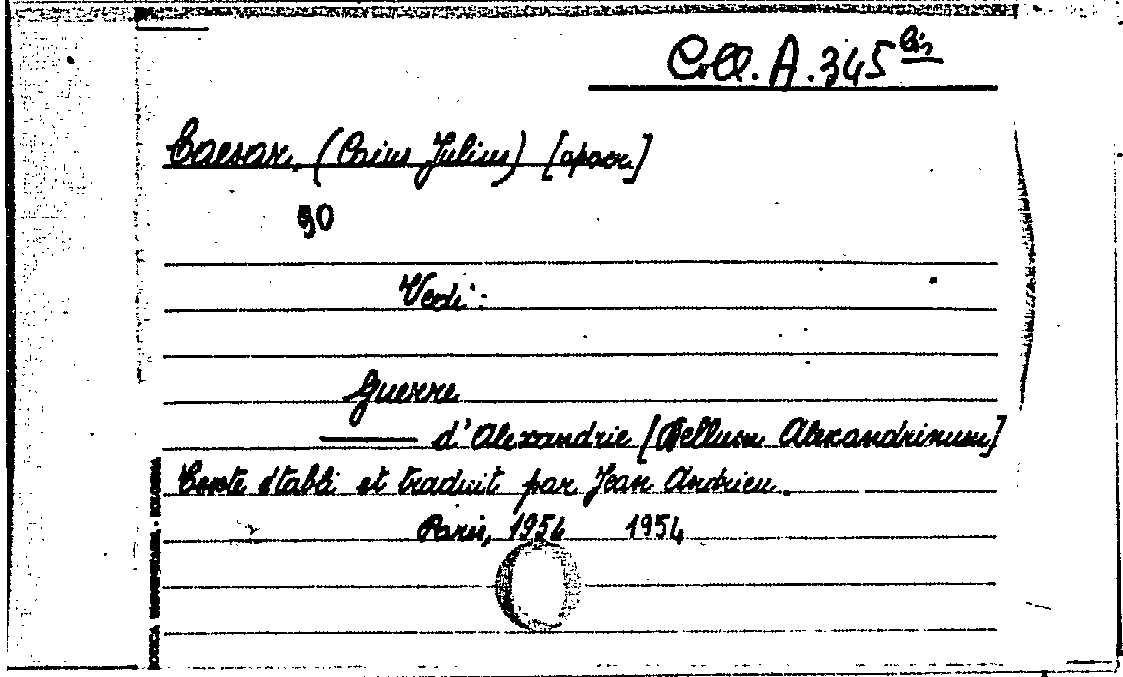 Coll. A. 345 bis
Caesar, (Caius Julius) [apocr.]
90
Vedi:
Guerre
d'Alexandrie [Bellum Alexandrinum]
Texte établi et traduit par Jean Andrieu.
Paris, 1954 1954